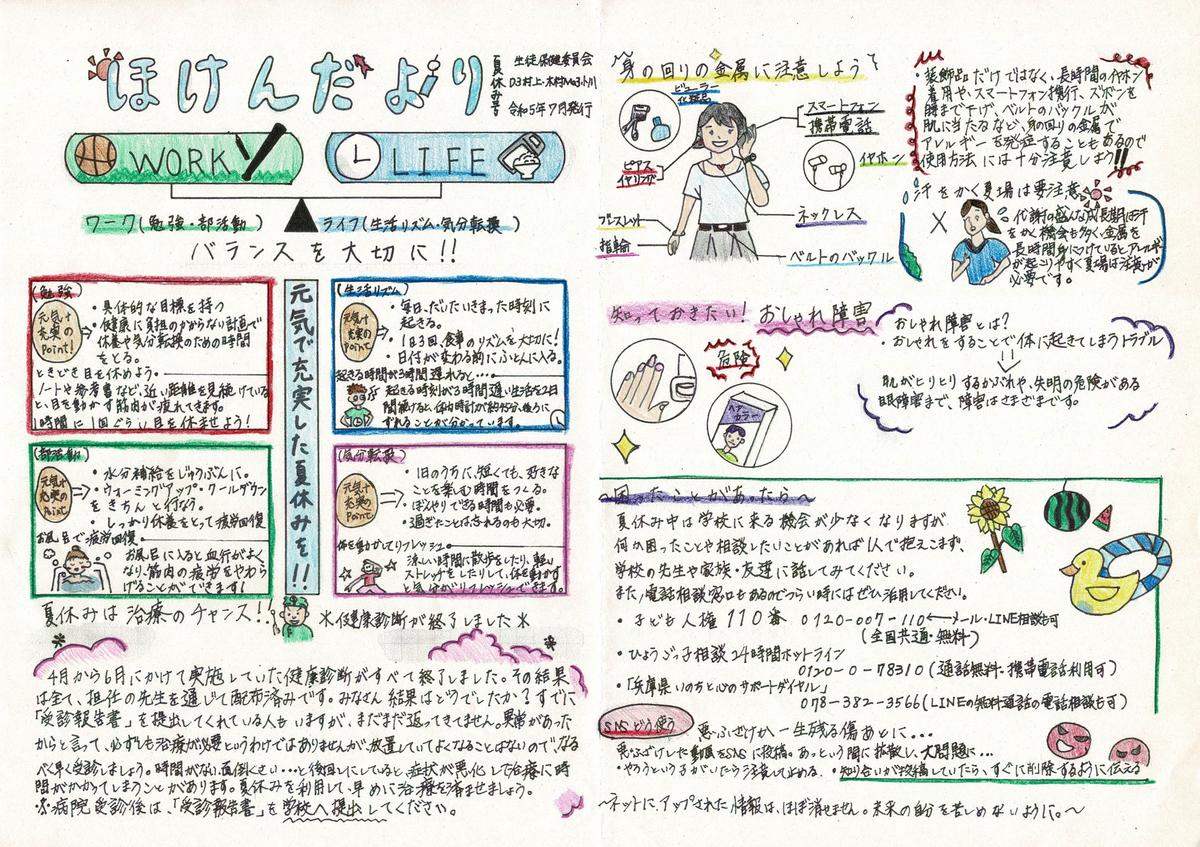 ほけんだより
夏休み号
生徒保健委員会
令和5年7月発行
WORK
LIFE
ワーク(勉強・部活動)
ライフ(生活リズム・気分転換)
バランスを大切に!!
元気で充実した夏休みを!!
(勉強)
元気+
充実の
Point!
・具体的な目標を持つ
・健康に負担のかからない計画で
休養や気分転換のための時間
をとる。
ときどき目を休めよう。
ノートや参考書など、近い距離を見続けている
と、目を動かす筋肉が疲れてきます。
1時間に1回ぐらい目を休ませよう!
(生活リズム)
元気+
充実の
Point
・毎日、だいたいきまった時刻に
起きる。
・1日3回、食事のリズムを大切に!
・日付が変わる前にふとんに入る。
起きる時間が3時間遅れると…
起きる時刻が3時間遅い生活を2日
間続けると、体内時計が約45分、後ろに
ずれることが分かっています。
(部活動)
元気+
充実の
Point
・水分補給をじゅうぶんに。
・ウォーミングアップ・クールダウン
をきちんと行なう。
・しっかり休養をとって疲労回復
お風呂で疲労回復
お風呂に入ると血行がよく
なり、筋肉の疲労をやわら
げることができます!
(気分転換)
元気+
充実の
Point
・1日のうちに、短くても、好きな
ことを楽しむ時間をつくる。
・ぼんやりできる時間も必要。
・過ぎたことは忘れるのも大切。
体を動かしてリフレッシュ
涼しい時間に散歩をしたり、軽い
ストレッチをしたりして、体を動かす
と気分がリフレッシュできます。
夏休みは治療のチャンス!!
*健康診断が終了しました*
4月から6月にかけて実施していた健康診断がすべて終了しました。その結果
は全て、担任の先生を通じて配布済みです。みなさん結果はどうでしたか?すでに
「受診報告書」を提出してくれている人もいますが、まだまだ返ってきてません。異常があった
からと言って、必ずしも治療が必要というわけではありませんが、放置していてよくなることはないので、なる
べく早く受診しましょう。時間がない、面倒くさい…と後回しにしていると、症状が悪化した治療に時
間がかかってしまうことがあります。夏休みを利用して、早めに治療を済ませましょう。
※病院受診後は、「受診報告書」を学校へ提出してください。
~身の回りの金属に注意しよう~
ビューラー
化粧品
スマートフォン
携帯電話
ピアス
イヤリング
イヤホン
ブレスレット
指輪
ネックレス
ベルトのバックル
・装飾品だけではなく、長時間のイヤホン
着用や、スマートフォン携行、ズボンを
腰まで下げ、ベルトのバックルが
肌に当たるなど、身の回りの金属で
アレルギーを発症することもあるので
使用方法には十分注意しよう!!
汗をかく夏場は要注意
代謝の盛んな成長期は汗
をかく機会も多く、金属を
長時間身につけていると、アレルギー
が起こりやすく夏場は注意が
必要です。
知っておきたい!おしゃれ障害
危険
ヘアー
カラー
おしゃれ障害とは?
・おしゃれをすることで体に起きてしまうトラブル
肌がヒリヒリするかぶれや、失明の危険がある
眼障害まで、障害はさまざまです。
~困ったことがあったら~
夏休み中は学校に来る機会が少なくなりますが
何か困ったことや相談したいことがあれば1人で抱えこまず、
学校の先生や家族・友達に話してみてください。
また、電話相談窓口もあるのでつらい時にはぜひ活用してください。
・子ども人権110番 0120-007-110←メール・LINE相談も可
(全国共通・無料)
・ひょうごっ子相談24時間ホットライン
0120-0-78310(通話無料・携帯電話利用可)
・「兵庫県いのちと心のサポートダイヤル」
078-382-3566(LINEの無料通話の電話相談も可)
SNSどう使う
悪ふざけが一生残る傷あとに…
悪ふざけした動画をSNSに投稿。あっという間に拡散し、大問題に…
・やろうという子がいたら注意して止める。・知り合いが投稿していたら、すぐに削除するように伝える
~ネットに、アップされた情報は、ほぼ消せません。未来の自分を苦しめないように。~